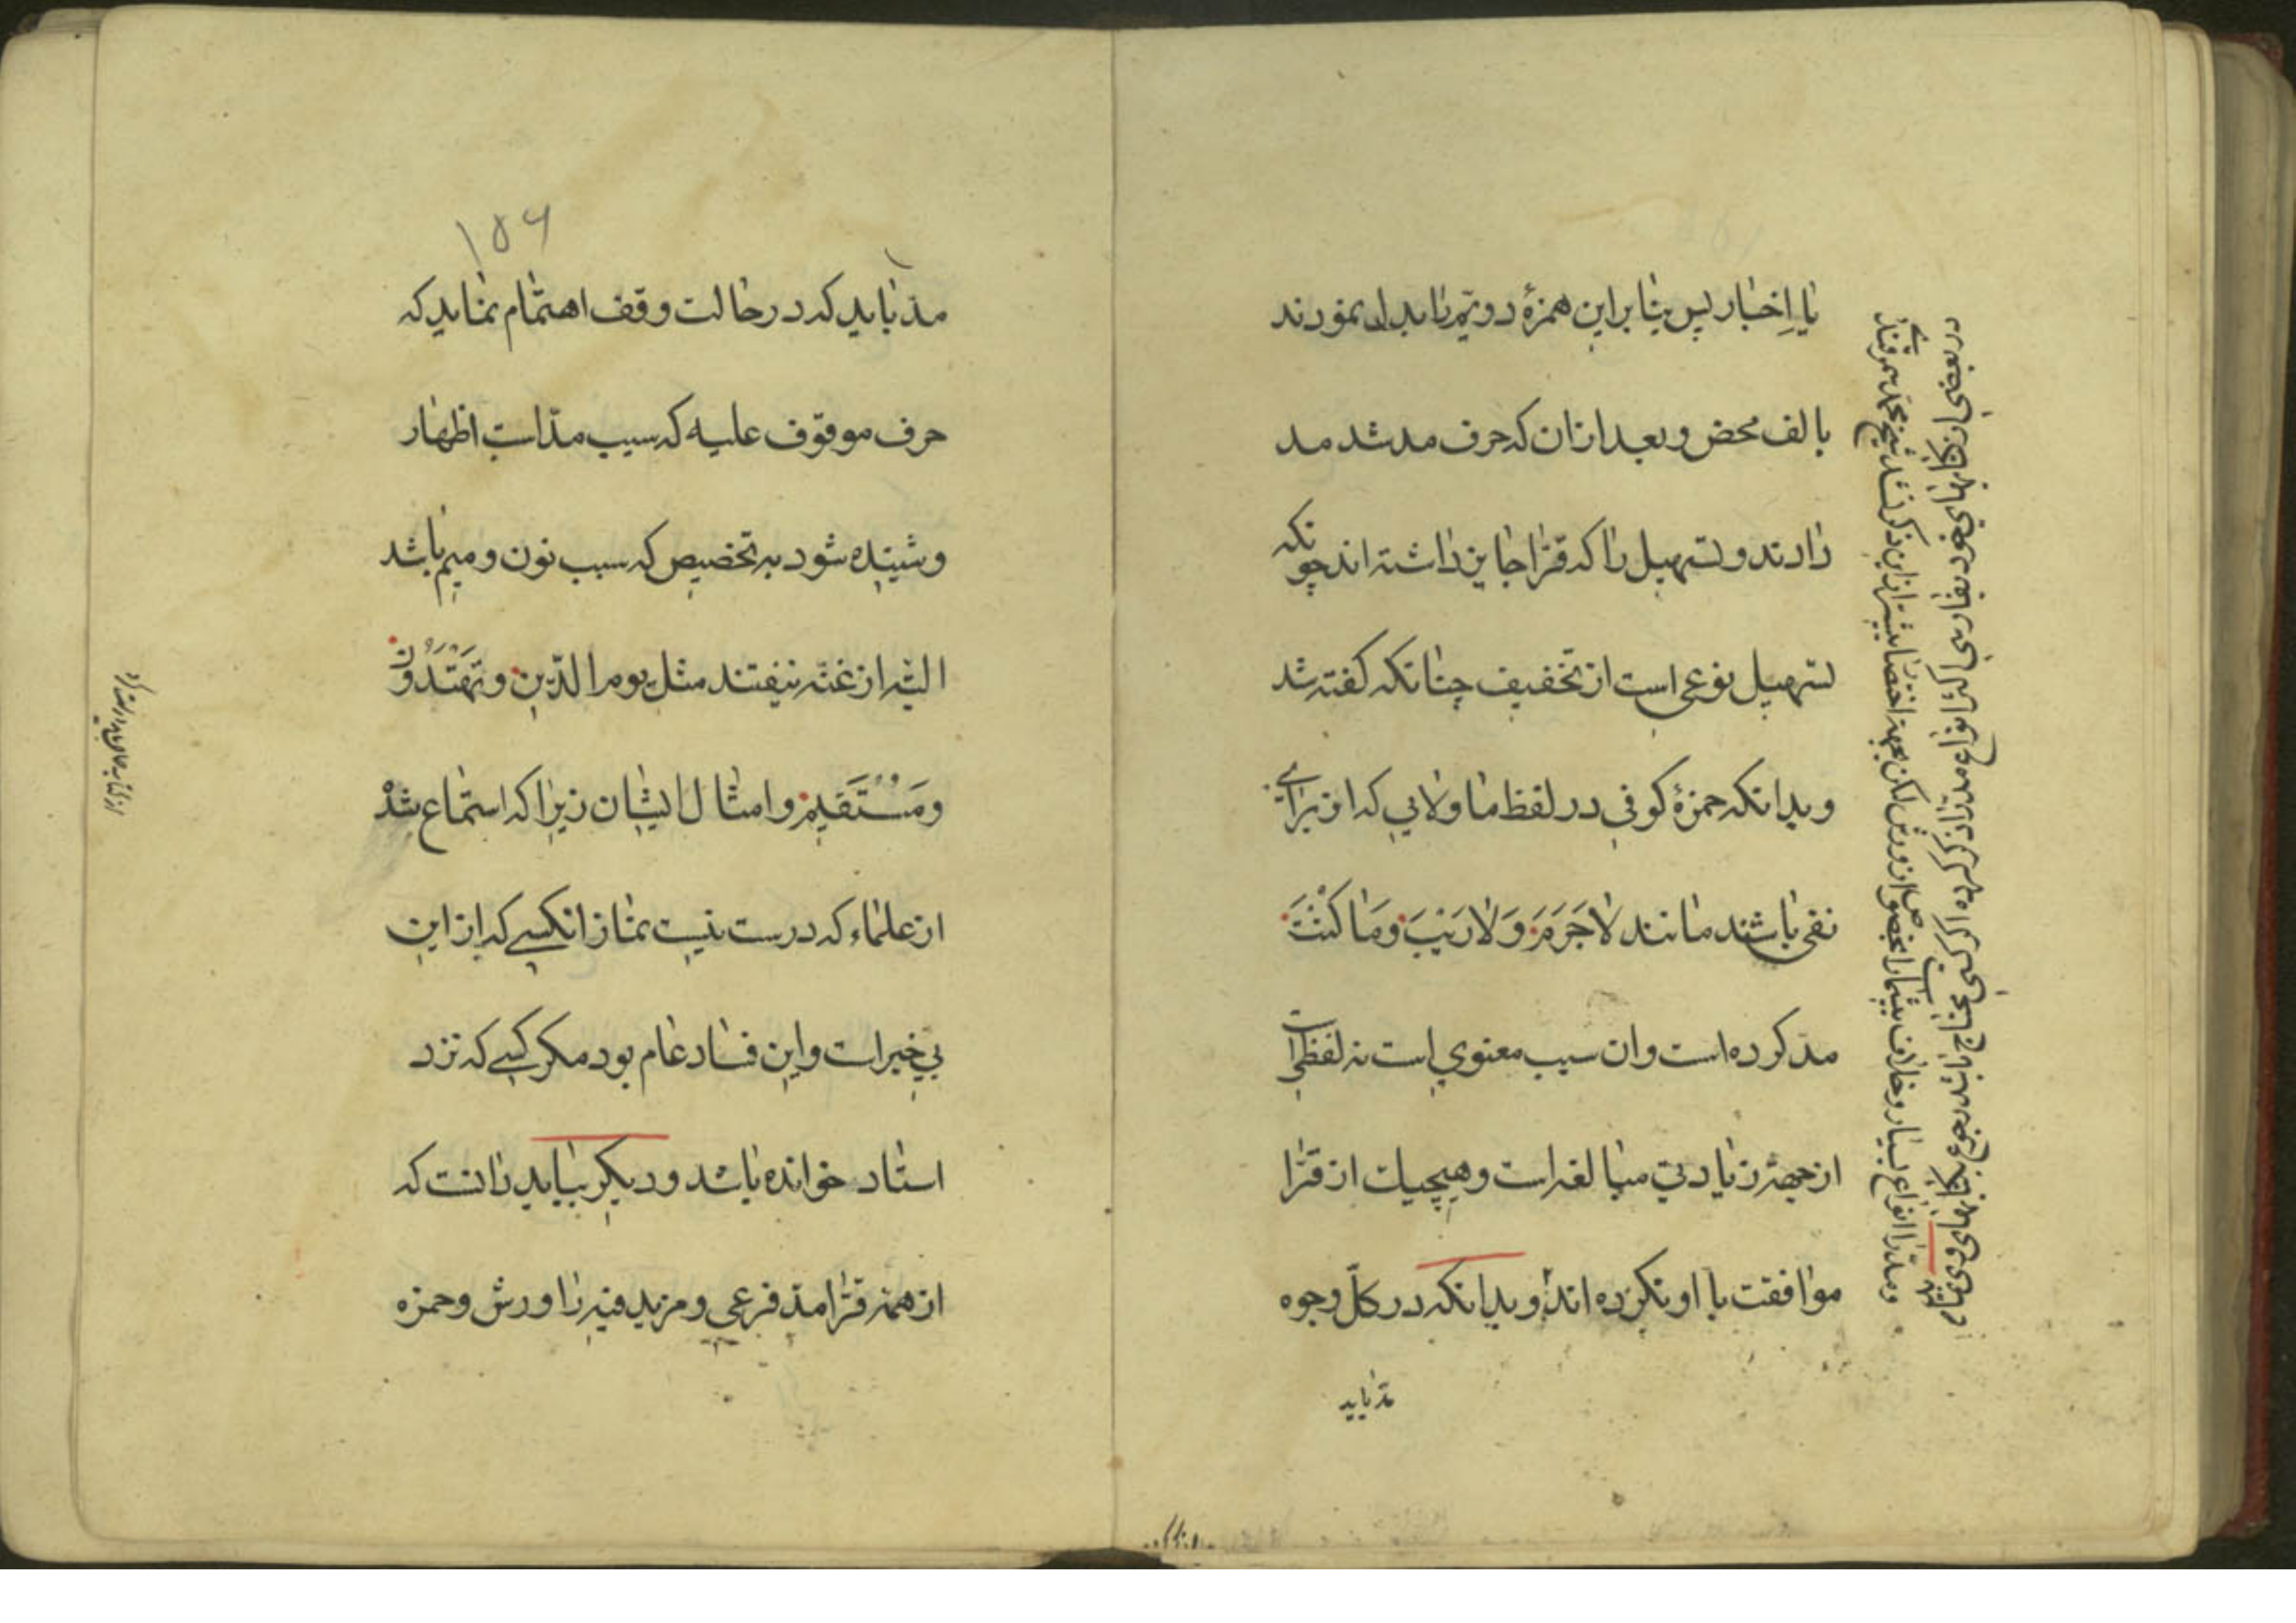 یا اِخبار پس بنا براین همزهٔ دویّم را بدل نمودند
بالف محض و بعد ازان که حرف مد شد مد
دادند و تسهیل را که قرّا جایز داشته اند چونکه
تسهیل نوعی است از تخفیف چنانکه کفته شد
و بدانکه حمزهٔ کوفی در لفظ ما و لایی که از برای
نفی باشند مانند لاجَرَمَ وَلارَیْبَ وَمَا کُنْتَ
مدّ کرده است وان سبب معنوي است نه لفظی
از جهة زیادتی مبالغه است وهیچیك از قرّا
موافقت با او نکرده اند و بدانکه در کلّ وجوه
مدّ باید
در بعضی از کتابهای تجوید بفارسی که انواع مدّ را ذکر کرده اند
ومدّ را انواع بسیار وخلاف بیشمار است بخصوص از ورش لکن بجهة اختصار بیشتر ازین ذکر نشد شیخ محمد سمرقندی
۱۵۶
مدّ باید که در حالت وقف اهتمام نماید که
حرف موقوف علیه که سبب مدّاست اظهار
وشنیده شود به تخصیص که سبب نون و میم باشد
البته از غنّه نیفتند مثل یوم الدّین و تَهْتَدُونَ
ومُسْتَقیم وامثال ایشان زیرا که استماع شد
از علماء که درست نیست نماز انکسی که از این
بی خبراست واین فساد عام بود مکر کسی که نزد
استاد خوانده باشد ودیکر بباید دانست که
از همه قرّا مدّ فرعی ومزید فیه را ورش وحمزه